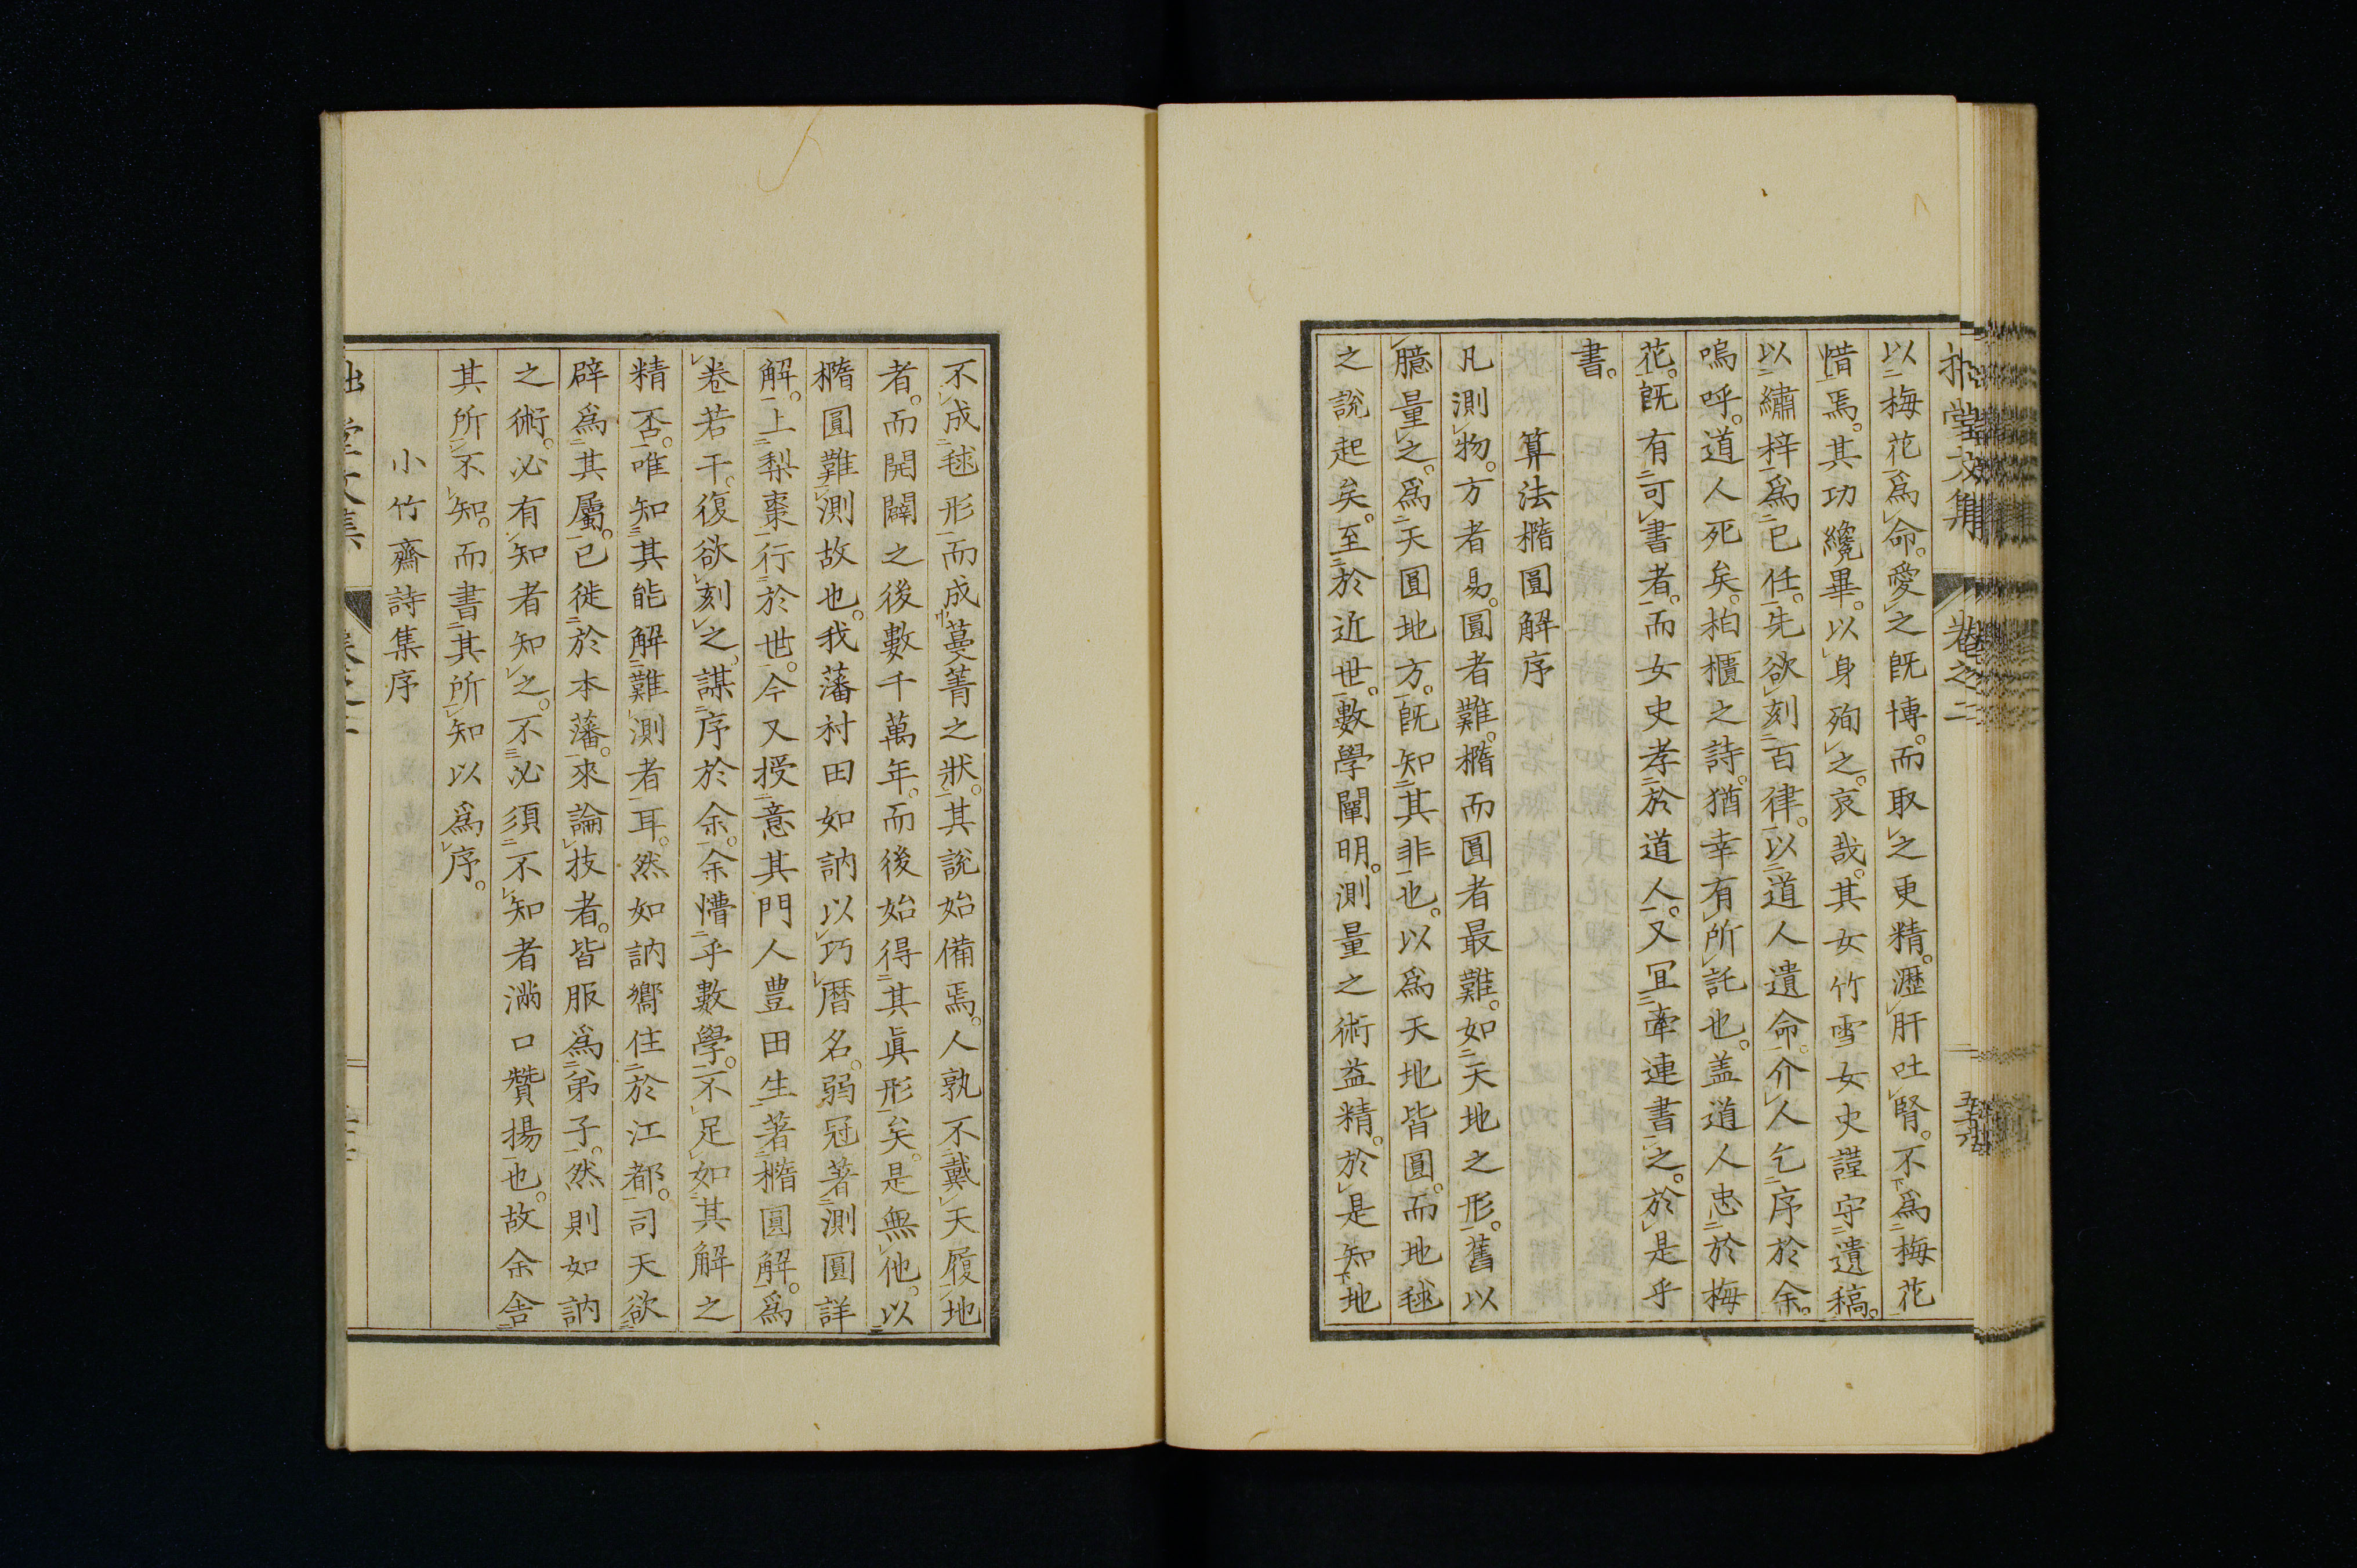 拙堂文集 卷之二 五十六
以梅花爲命。愛之既博。而取之更精。瀝肝吐腎。不爲梅花
惜焉。其功纔畢。以身殉之。哀哉。其女竹雪女史謹守遺稿。
以繡梓爲已任。先欲刻百律。以道人遺命。介人乞序於余。
嗚呼。道人死矣。柏櫃之詩。猶幸有所託也。盖道人忠於梅
花。既有可書者。而女史孝於道人。又宜牽連書之。於是乎
書。
算法橢圓解序
凡測物。方者易。圓者難。橢而圓者最難。如天地之形。舊以
臆量之。爲天圓地方。既知其非也。以爲天地皆圓。而地毬
之說起矣。至於近世。數學闡明。測量之術益精。於是知地
不成毬形而成蔓菁之狀。其說始備焉。人孰不戴天履地
者。而開闢之後數千萬年。而後始得其眞形矣。是無他。以
橢圓難測故也。我藩村田如訥以巧暦名。弱冠著測圓詳
解。上梨棗行於世。今又授意其門人豊田生著橢圓解。爲
卷若干。復欲刻之、謀序於余。余懵乎數學。不足如其解之
精否。唯知其能解難測者耳。然如訥嚮住於江都。司天欲
辟爲其屬。已徙於本藩。來論技者。皆服爲弟子。然則如訥
之術。必有知者知之。不必須不知者滿口贊揚也。故余舍
其所不知。而書其所知以爲序。
小竹齋詩集序